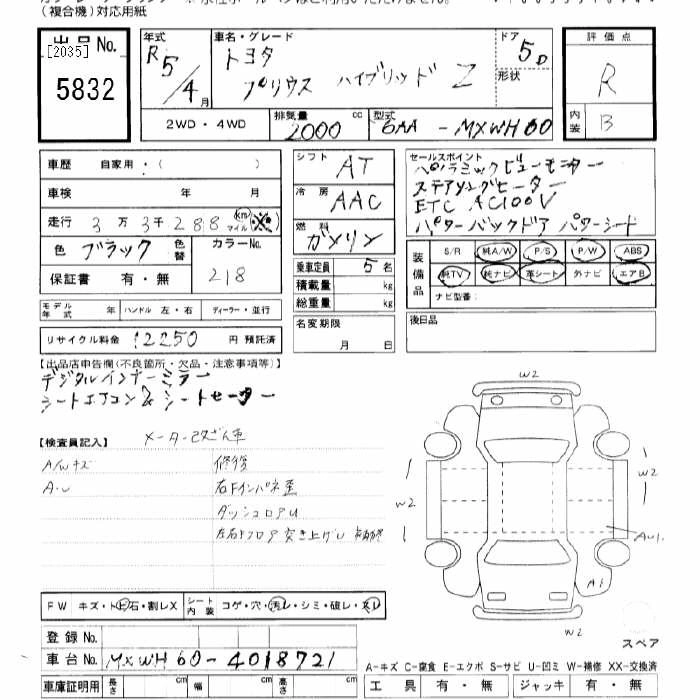 （複合機）対応用紙
出品No.
[2035]
5832
年式
R5/4月
車名・グレード
トヨタ
プリウス ハイブリッド Z
ドア
5D
形状
評価点
R
内装
B
2WD・4WD
排気量
2000 cc
型式
6AA - MXWH60
車歴 自家用・( )
車検 年 月
走行 3万3千288 km マイル
色 ブラック
色替
カラーNo.
218
保証書 有・無
シフト AT
冷房 AAC
燃料 ガソリン
乗車定員 5名
積載量 kg
総重量 kg
名変期限
月 日
セールスポイント
パノラミックビューモニター
ステアリングヒーター
ETC AC100V
パワーバックドア パワーシート
装備品
S/R 純A/W P/S P/W ABS
純TV 純ナビ 革シート 外ナビ エアB
ナビ型番:
後日品
モデル年式 年 ハンドル 左・右 ディーラー・並行
リサイクル料金 12250 円 預託済
【出品店申告欄(不良箇所・欠品・注意事項等)】
デジタルインナーミラー
シートエアコン& シートヒーター
【検査員記入】
メーター改ざん車
A/Wキズ
A・U
修復
右Fインパネ歪
ダッシュロアU
左右Fフロア突き上げU
W2
W2
W2
AU1
A1
W2
スペア
FW キズ・ト石・割レX
シート内装 コゲ・穴・汚レ・シミ・破レ・スレ
登録No.
車台No. MXWH60-4018721
車庫証明用 長さ cm 幅 cm 高さ cm
A-キズ C-腐食 E-エクボ S-サビ U-凹ミ W-補修 XX-交換済
工具 有・無 ジャッキ 有・無